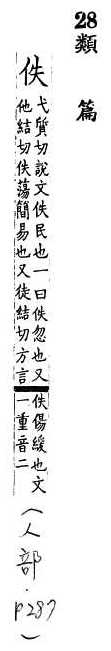 28類篇
佚弋質切說文佚民也一曰佚忽也又
他結切佚蕩簡易也又徒結切方言
佚傷緩也文
一重音二
(人部.p287)